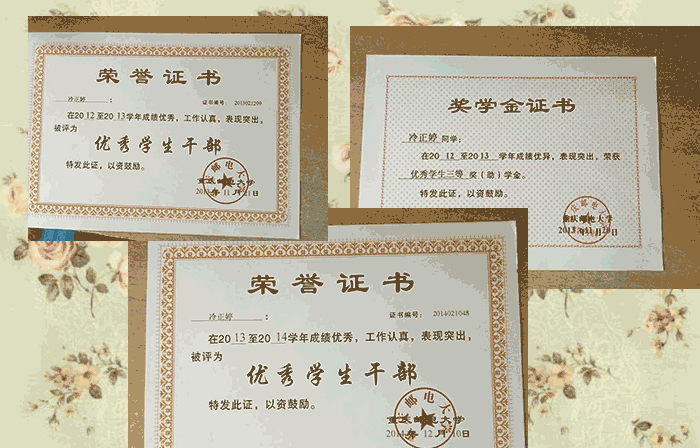 荣誉证书
冷正婷 ：
证书编号：2013021200
在2012至2013学年成绩优秀，工作认真，表现突出，
被评为
优秀学生干部
特发此证，以资鼓励。
重庆邮电大学
奖学金证书
冷正婷 同学：
在2012至2013 学年成绩优异，表现突出，荣获
优秀学生三等 奖（助）学金。
特发此证，以资鼓励。
重庆邮电大学
荣誉证书
冷正婷 ：
证书编号：2014021048
在2013至2014学年成绩优秀，工作认真，表现突出，
被评为
优秀学生干部
特发此证，以资鼓励。
重庆邮电大学